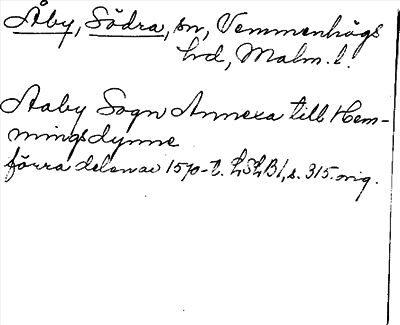 Åby, Södra, sn, Vemmenhögs
hd, Malm. l.
Aaby Sogn Annexa till Hem-
mingsdynne
förra delen av 1570-t. LSLB1, s. 315. orig.